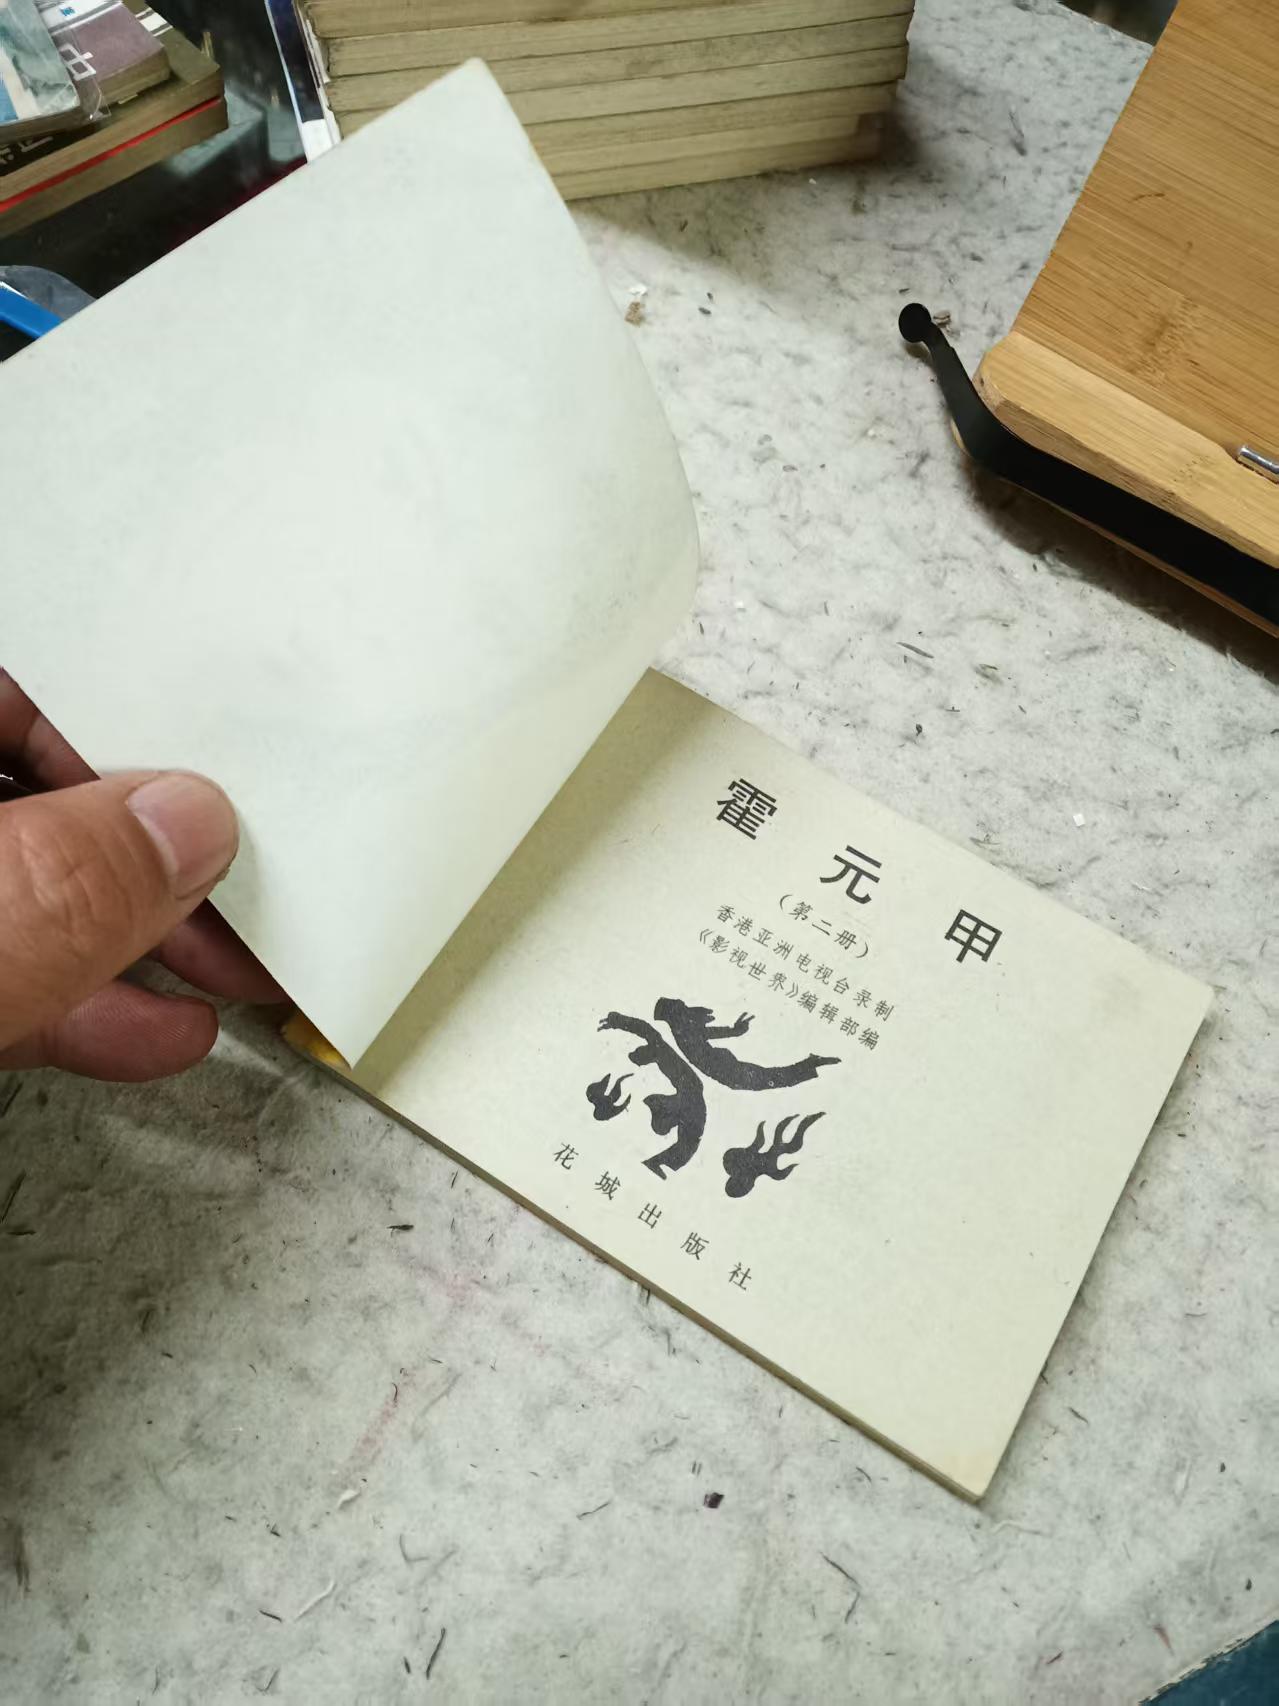 霍元甲
(第二册)
香港亚洲电视台录制
《影视世界》编辑部编
花城出版社
中